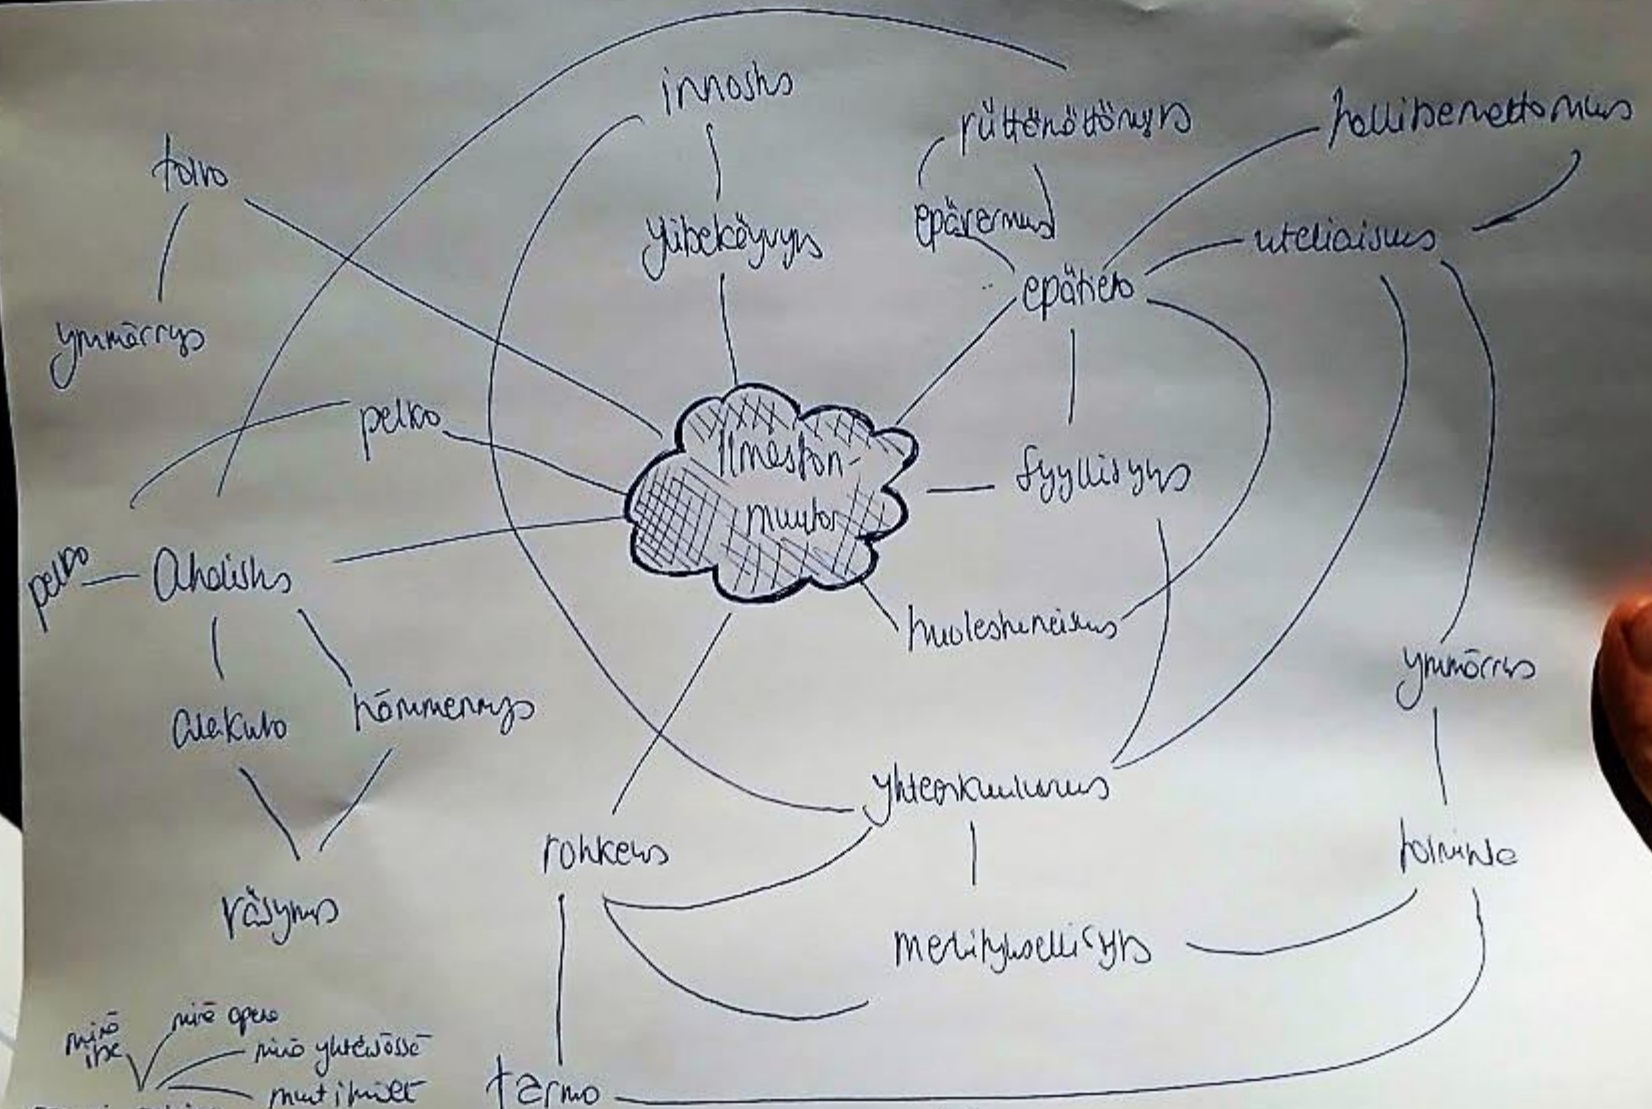 innostus
riittämättömyys
hallitsemattomuus
toivo
ylitsekäyvyys
epävarmuus
uteliaisuus
epätieto
ymmärrys
pelko
Ilmaston-
muutos
syyllisyys
pelko
Ahdistus
huolestuneisuus
ymmärrys
alakulo
hämmennys
yhteenkuuluvuus
rohkeus
toiminta
väsymys
merkityksellisyys
minä
itse
minä opena
minä yhteisössä
muut ihmiset
tarmo